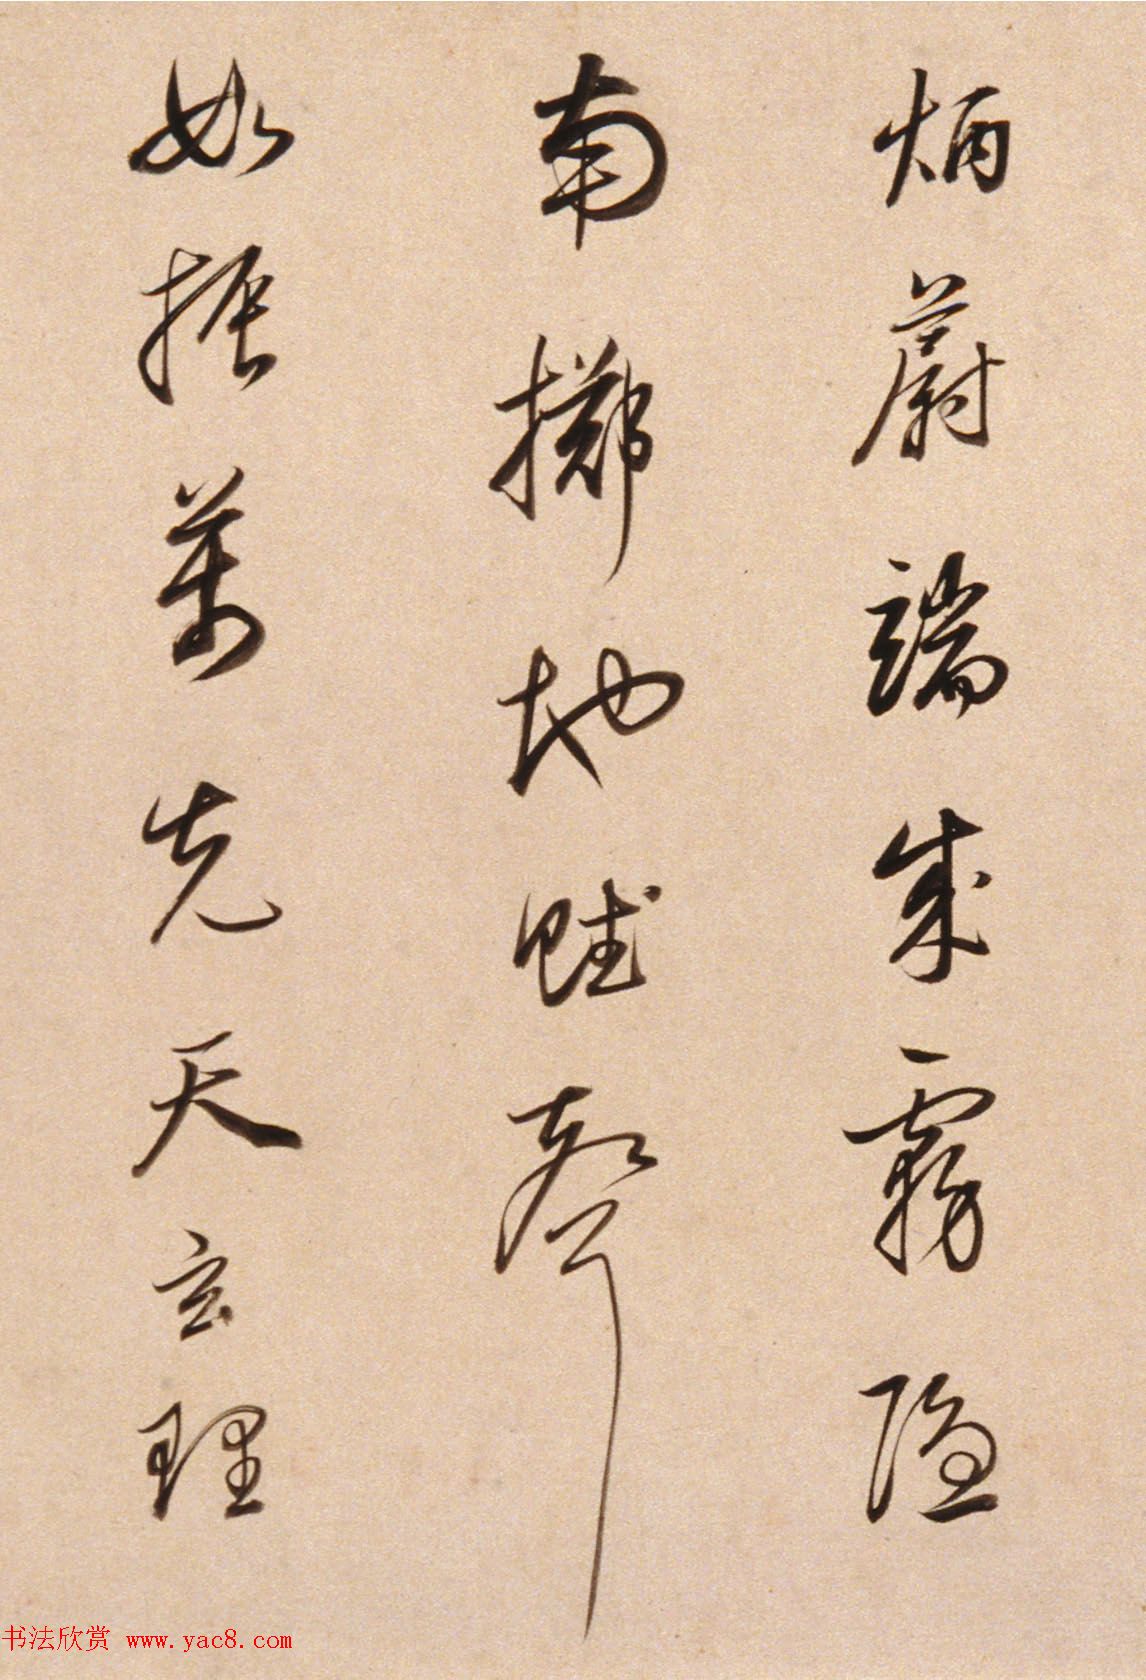 炳蔚端成霧隐
南擲地賦聲
如振萬先天玄理
书法欣赏 www.yac8.com